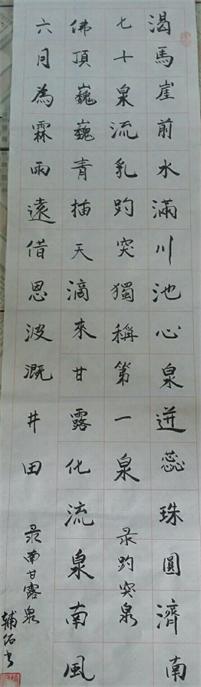 渴馬崖前水滿川池心泉迸蕊珠圓濟南
七十泉流乳趵突獨稱第一泉 录趵突泉
佛頂巍巍青插天滴來甘露化流泉南風
六月為霖雨遠借恩波溉井田 录南甘露泉
輔佑书